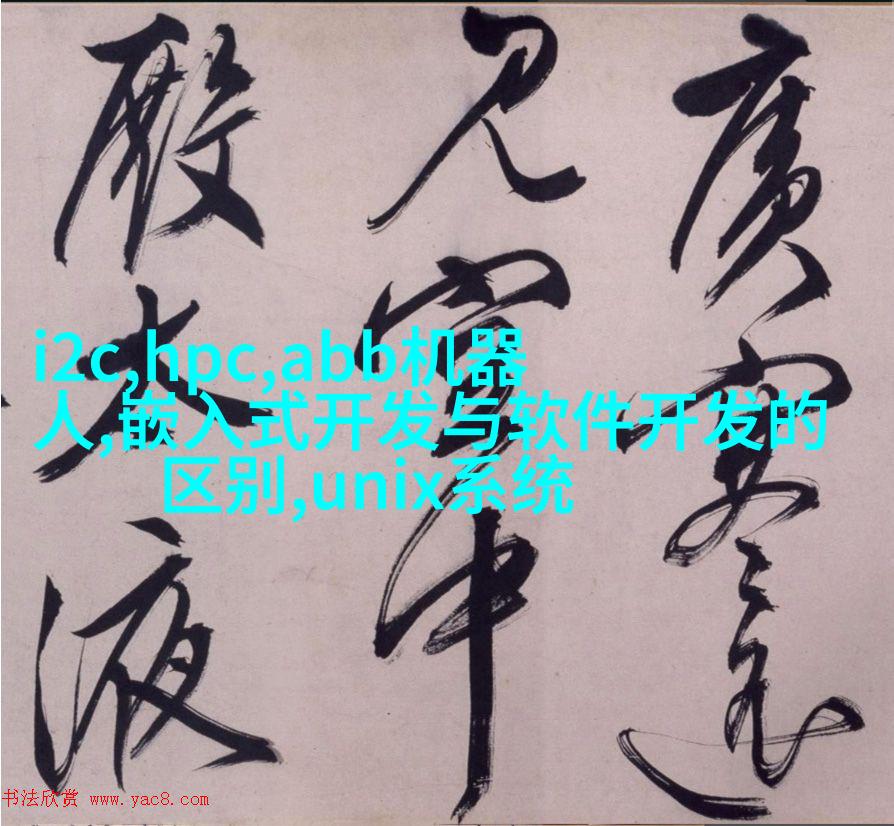 廣寒遙
見空中
殿太液
i2c,hpc,abb机器
人,嵌入式开发与软件开发的
区别,unix系统
书法欣赏 www.yac8.com